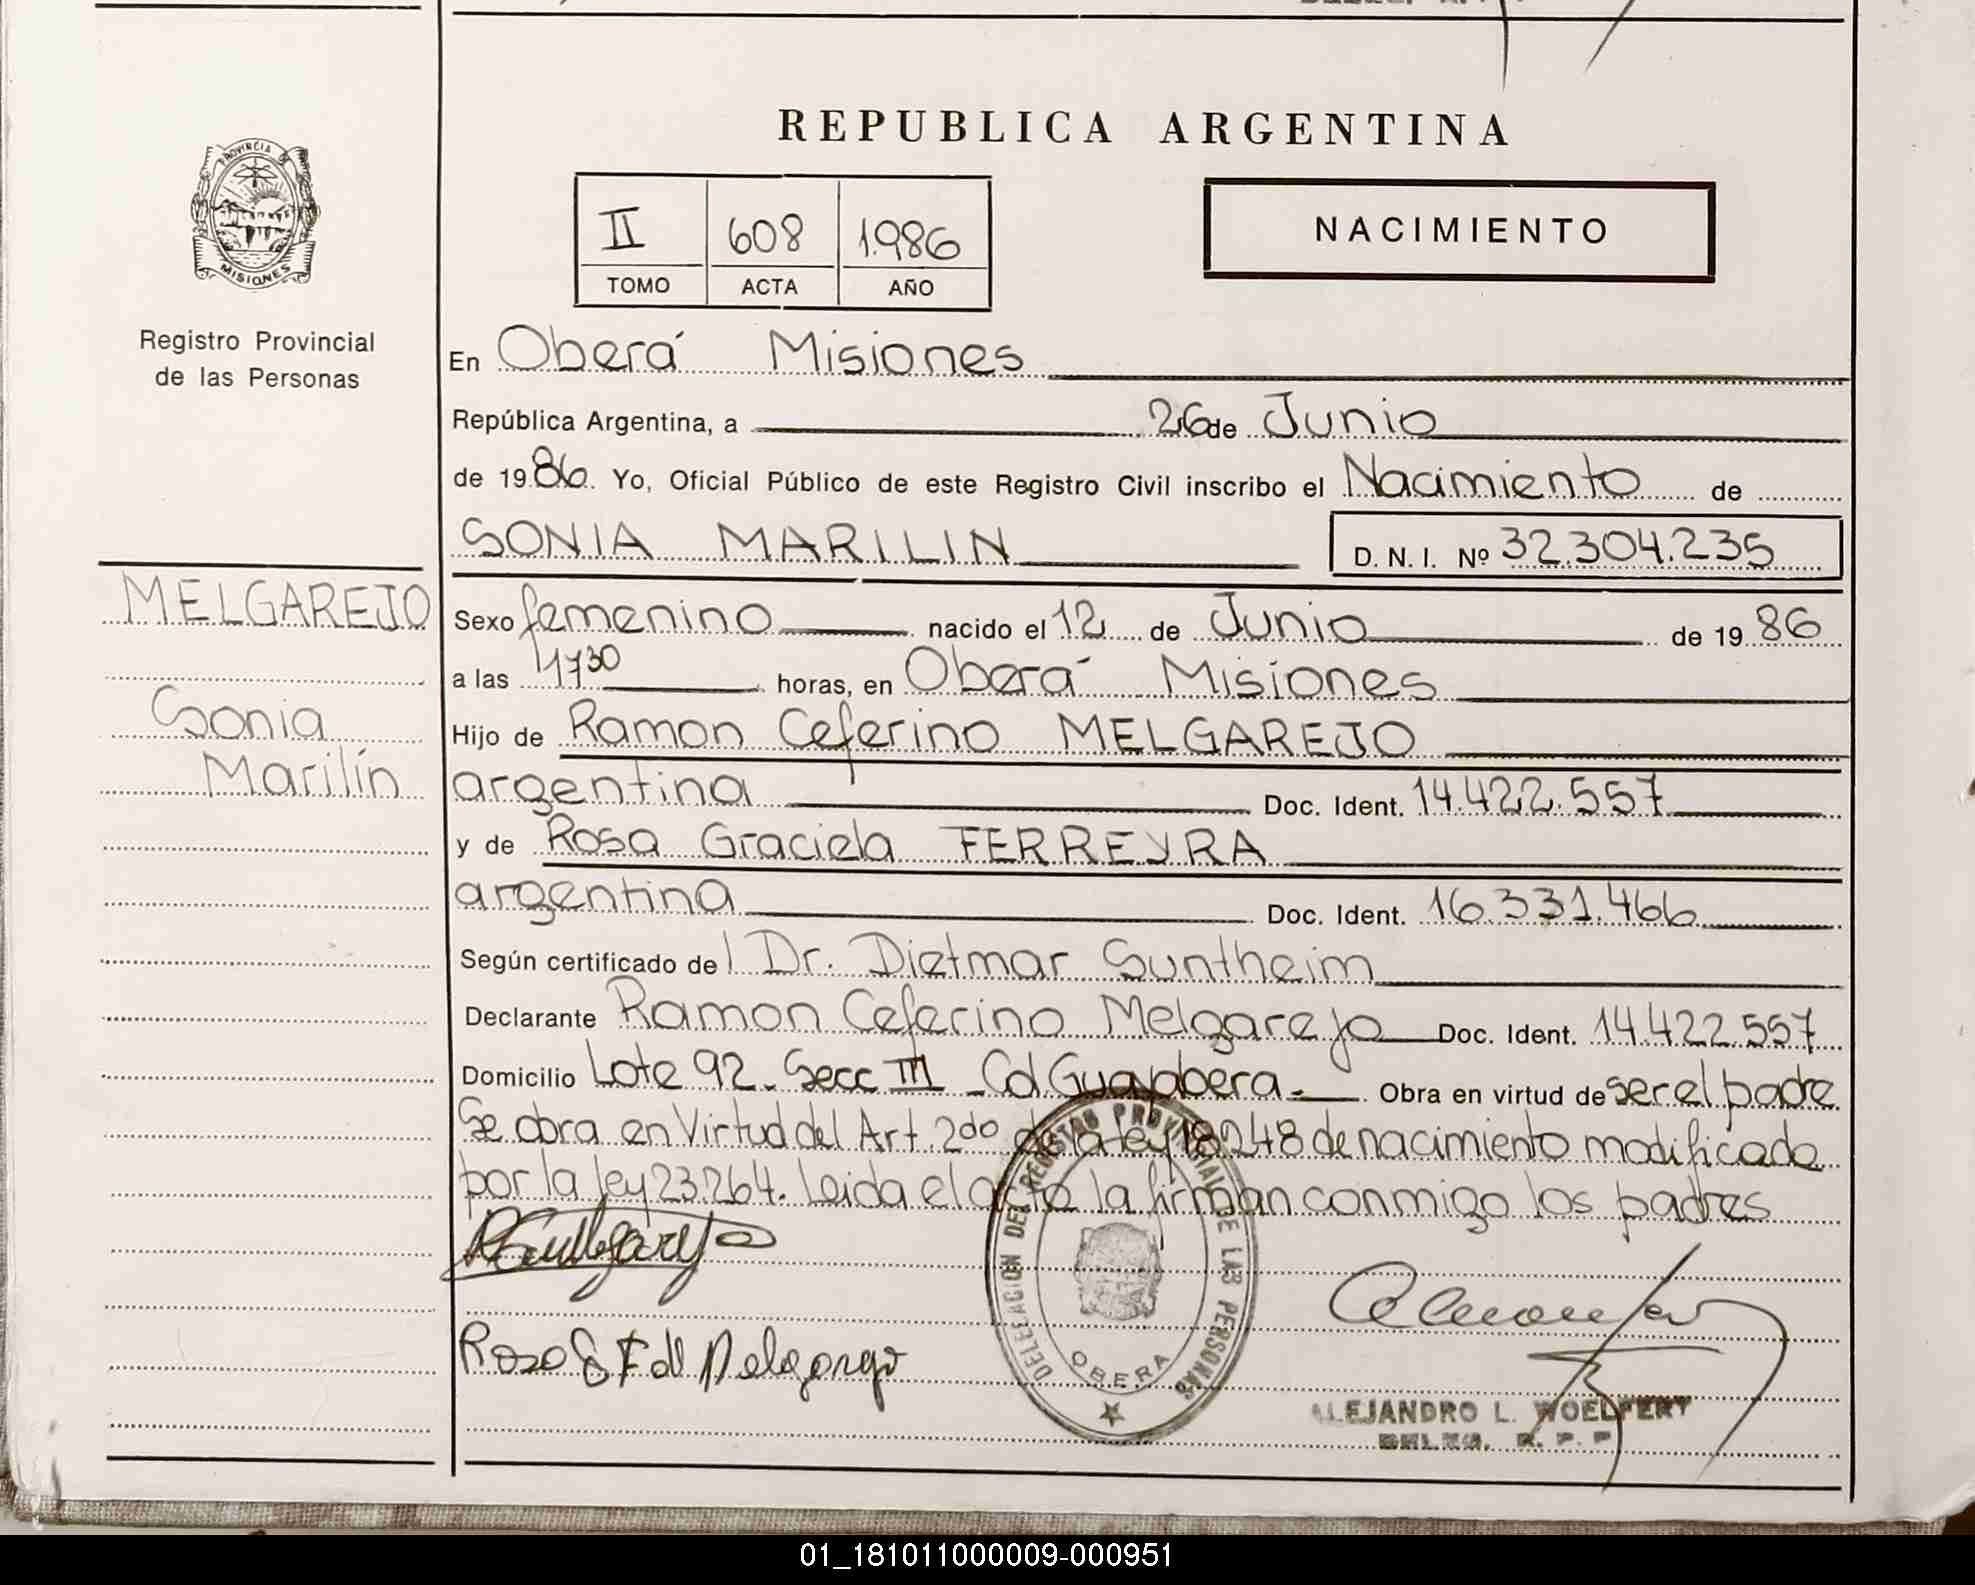 REPUBLICA ARGENTINA
PROVINCIA DE
MISIONES
II 608 1.986
TOMO ACTA AÑO
NACIMIENTO
Registro Provincial
de las Personas
En Oberá Misiones
República Argentina, a 26 de Junio
de 1986. Yo, Oficial Público de este Registro Civil inscribo el Nacimiento de
SONIA MARILIN D. N. I. Nº 32.304.235
MELGAREJO
Sonia
Marilín
Sexo femenino nacido el 12 de Junio de 1986
a las 1730 horas, en Oberá Misiones
Hijo de Ramon Ceferino MELGAREJO
argentina Doc. Ident. 14.422.557
y de Rosa Graciela FERREYRA
argentina Doc. Ident. 16.331.466
Según certificado del Dr. Dietmar Suntheim
Declarante Ramon Ceferino Melgarejo Doc. Ident. 14.422.557
Domicilio Lote 92 - Secc III - Col Guayabera.- Obra en virtud de ser el padre
Se obra en Virtud del Art. 2do de la ley 18248 de nacimiento modificada
por la ley 23.264. Leida el acta la firman conmigo los padres
DELEGACION DEL REGISTRO PROVINCIAL DE LAS PERSONAS
OBERA
ALEJANDRO L. WOELFERT
DELEG. R. P. P.
01_181011000009-000951